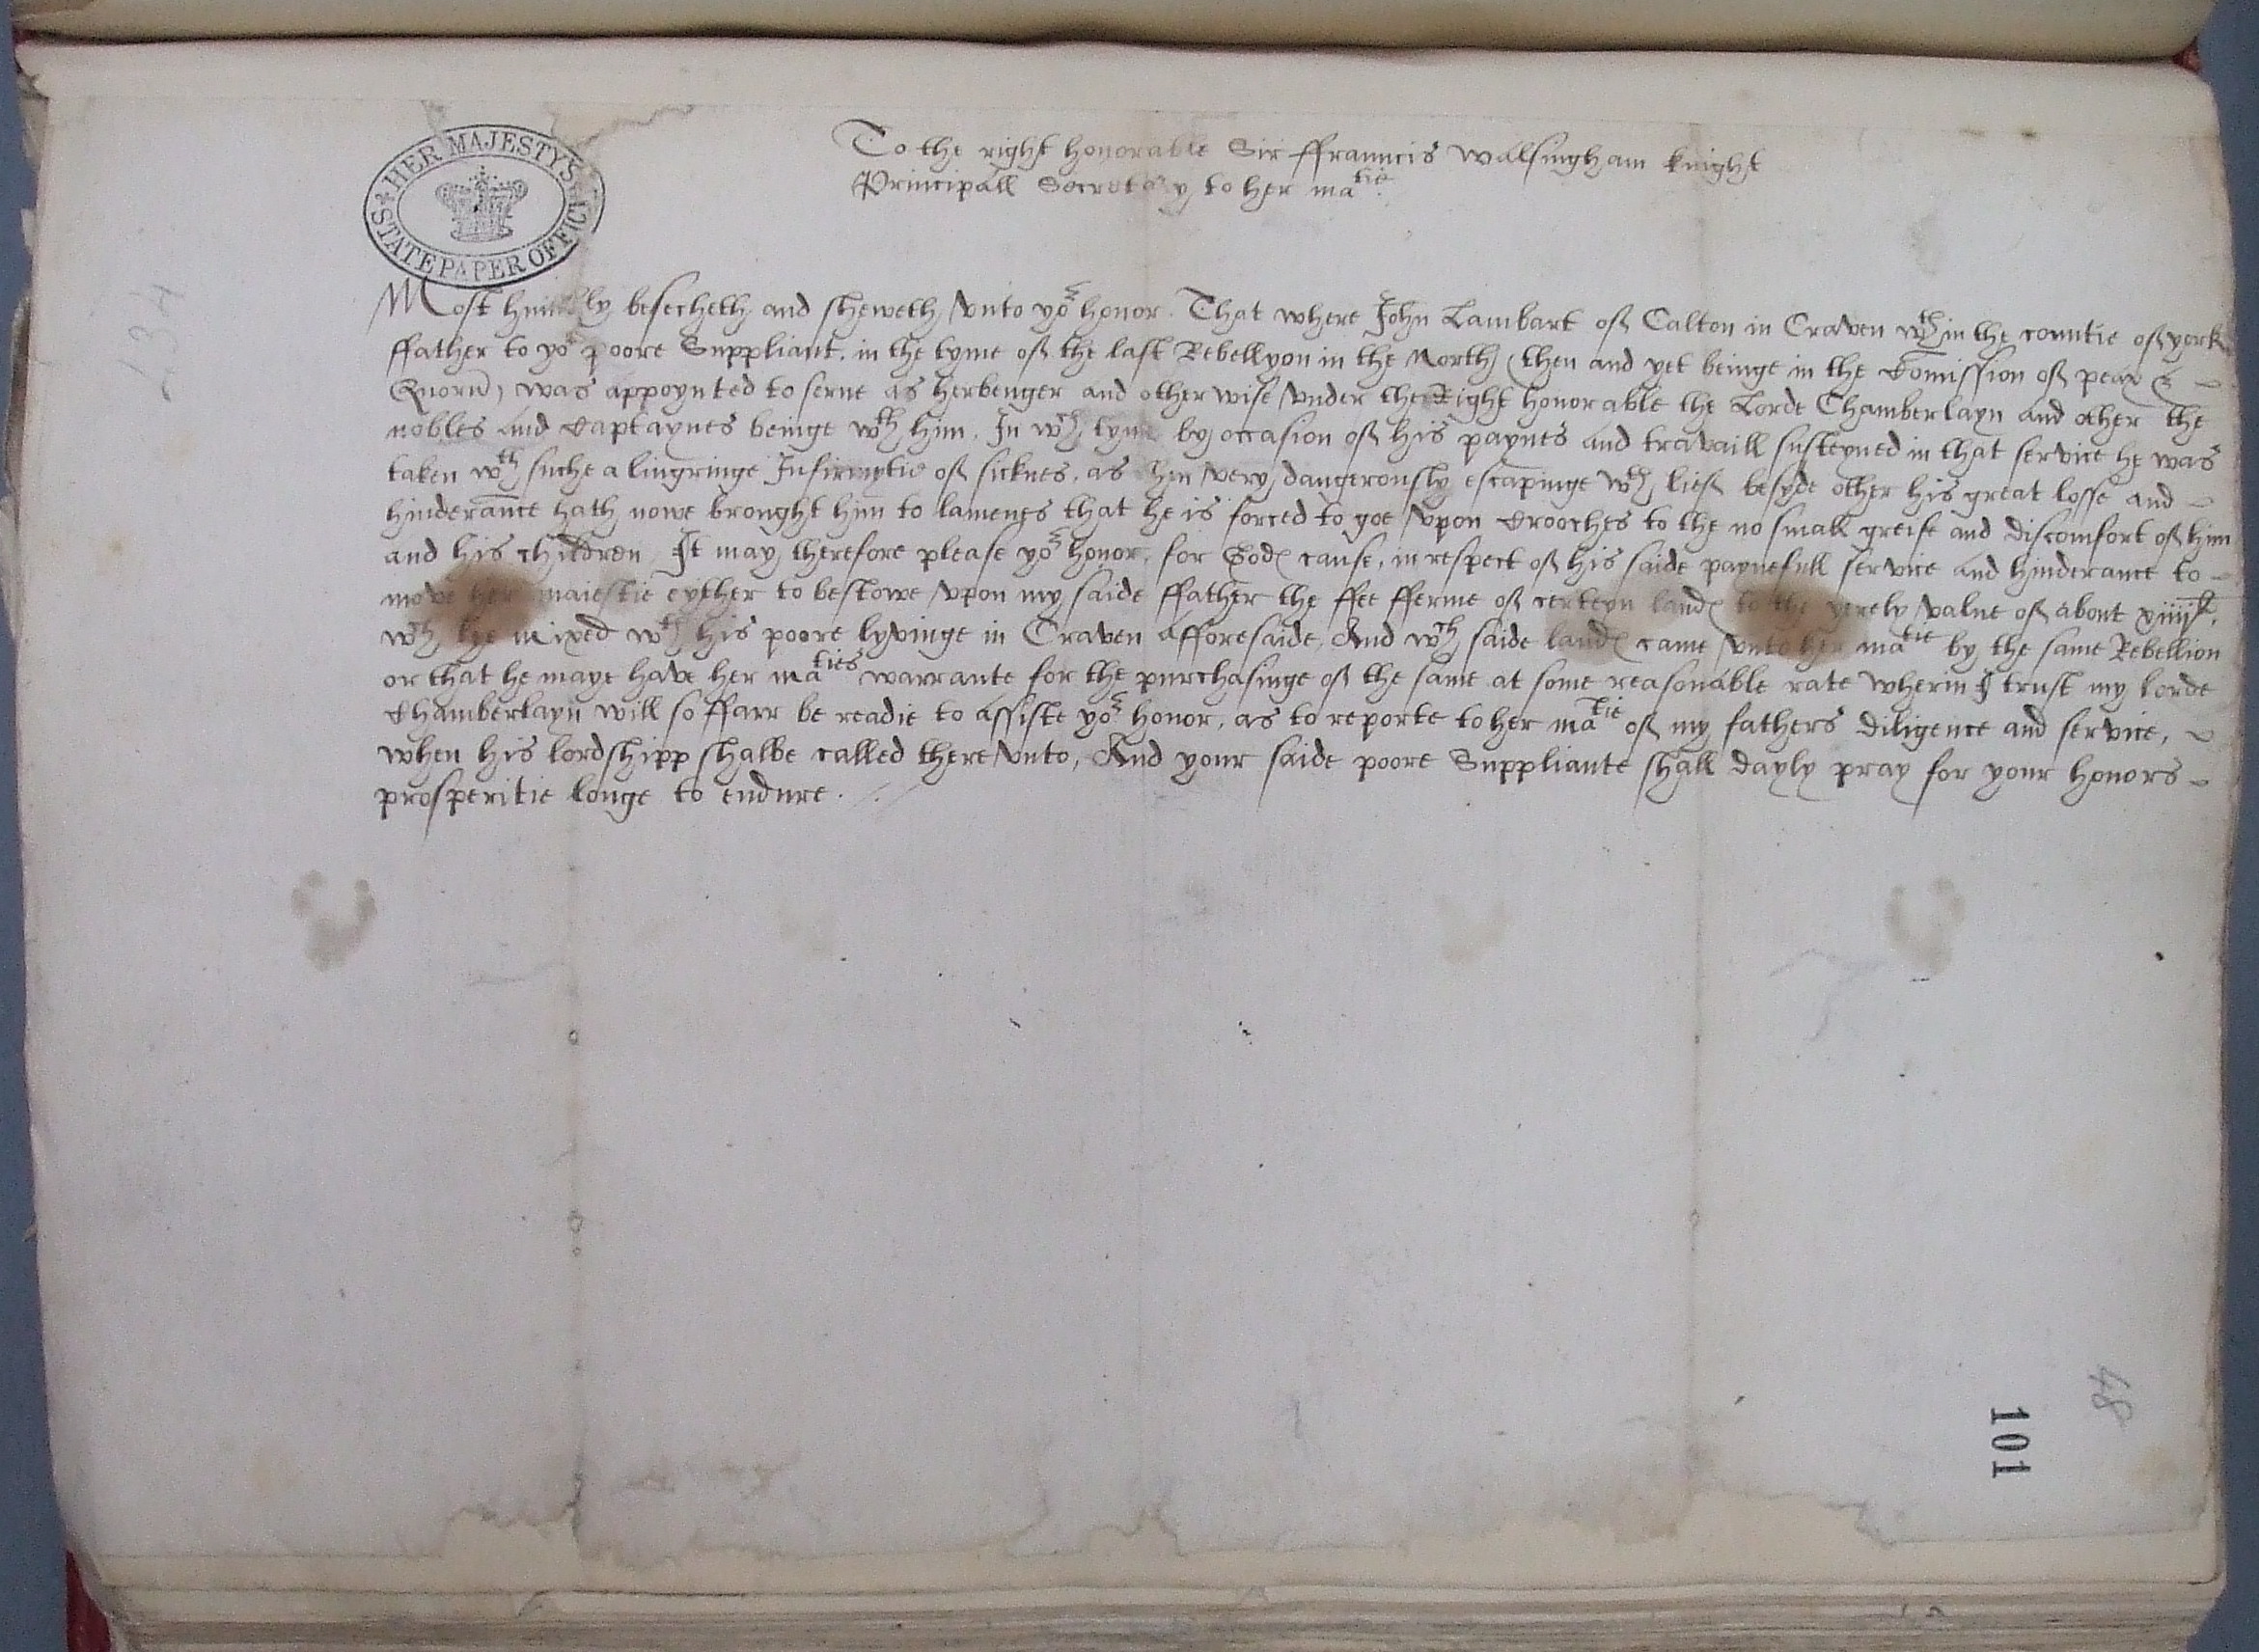 HER MAJESTY'S
STATE PAPER OFFICE
134
To the right honorable Sir ffrauncis Walsingham knight
Principall Secretary to her matie.
Most humbly besecheth and sheweth vnto yor honor. That where John Lambart of Calton in Craven wthin the countie of york
ffather to yor poore Suppliant, in the tyme of the last Rebellyon in the North (then and yet beinge in the Comission of peax &
Quorum) was appoynted to serue as herbenger and otherwise vnder the Right honorable the Lorde Chamberlayn and other the
nobles and Captaynes beinge wth him. In wch tyme by occasion of his paynes and travaill susteyned in that service he was
taken wth suche a lingringe Infirmytie of sicknes, as him very dangerously escapinge wth lief besyde other his great losse and
hinderance hath nowe brought him to lamenes that he is forced to goe vpon Crooches to the no small greife and discomfort of him
and his children It may therefore please yor honor, for Gods cause, in respect of his saide paynefull service and hinderance to
move her maiestie eyther to bestowe vpon my saide ffather the ffee fferme of certeyn lands to the yerely value of about xiiijli.
wch lye mixed wth his poore lyvinge in Craven afforesaide, And wch saide lands came vnto her matie by the same Rebellion
or that he maye have her maties warrante for the purchasinge of the same at some reasonable rate wherin I trust my lorde
Chamberlayn will so ffarr be readie to assiste yor honor, as to reporte to her matie of my fathers diligence and service,
when his lordshipp shalbe called therevnto, And your saide poore Suppliante shall dayly pray for your honors
prosperitie longe to endure.
48
101